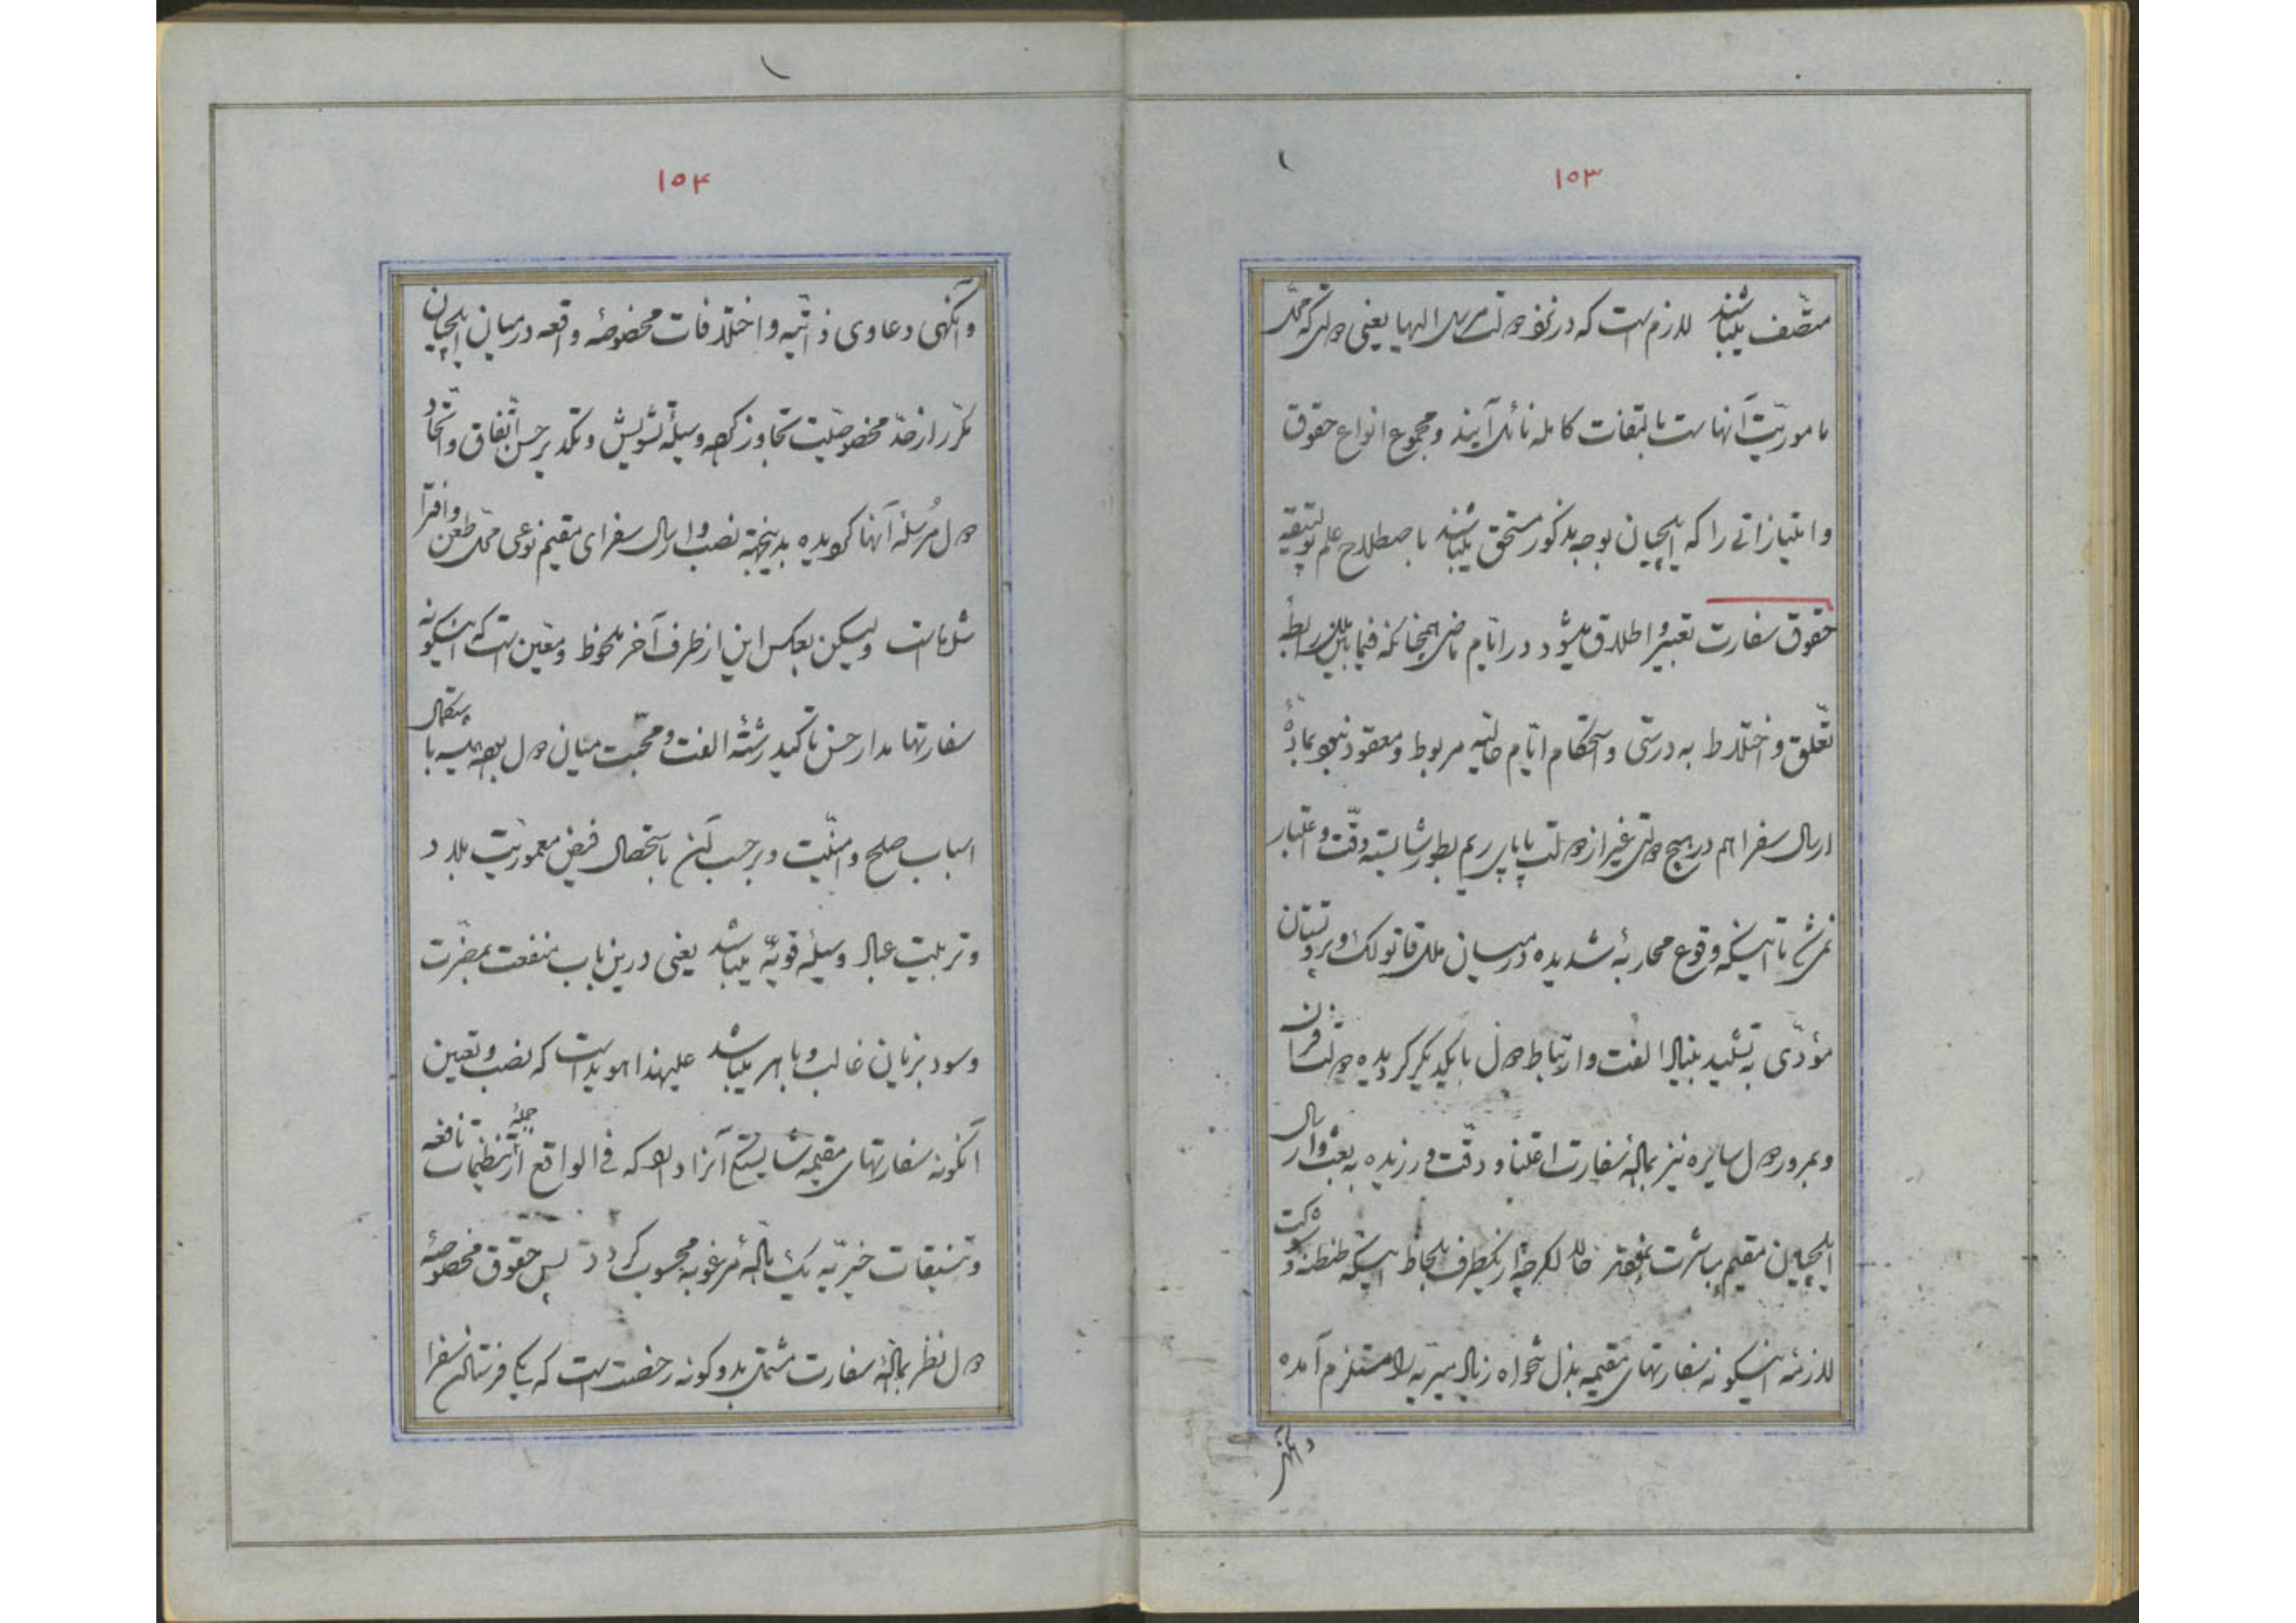 ۱۵۳
متصف میباشند لازم است که در نزد دولت مرسل الیها یعنی دولتی که محل
ماموریت آنهاست بالتفات کامله نائل آیند و مجموع انواع حقوق
و امتیازاتی را که ایلچیان بوجه مذکور مستحق میباشند باصطلاح علم پولتیقیه
حقوق سفارت تعبیر و اطلاق میشود در ایام ماضی همچنانکه فیمابین ملل رابطه
تعلق و اختلاط به درستی و استحکام ایام حالیه مربوط و معقود نبود بماده
ارسال سفرا هم در هیچ دولتی غیر از دولت پاپای ریم بطور شایسته دقت و اعتبار
نمی‌شد تا اینکه وقوع محاربه شدیده در میان ملل قاتولک و پروتستان
مؤدی به تشیید بنیاد الفت و ارتباط دول بایکدیگر گردیده دولت
و بمرور دول سایره نیز بماده سفارت اعتنا و دقت ورزیده به بعث و ارسال
ایلچیان مقیم مباشرت نمودند حالا اگرچه از یکطرف بلحاظ اینکه طنطنه و شوکت
لازمه اینگونه سفارتهای مقیمه بذل تنخواه زیاد میریه را مستلزم آمده
وانگهی
۱۵۴
وانگهی دعاوی ذاتیه و اختلافات مخصوصه واقعه در میان ایلچیان
مکرر از حد مخصوصیت تجاوز کرده وسیله تشویش و تکدیر حسن اتفاق و اتحاد
دول مُرسله آنها گردیده بدینجهة نصب و ارسال سفرای مقیم نوعی محل طعن و افترا
شده است ولیکن بعکس این از طرف آخر ملحوظ و معین است که اینگونه
سفارتها مدار حسن تاکید رشته الفت و محبت میان دول بوده همیشه با استکمال
اسباب صلح و امنیت و برحسب آن باستحصال فیض معموریت بلاد
و تربیت عباد وسیله قویه میباشد یعنی درین باب منفعت بمضرت
و سود بزیان غالب و باهر میباشد علیهذا هویداست که نصب و تعیین
آنگونه سفارتهای مقیمه شایستگی آنرا دارد که فی الواقع از جمله تنظیمات نافعه
و تنسیقات خیریه یک ماده مرغوبه محسوب گردد پس حقوق مخصوصه
دول نظر بماده سفارت مشتمل بدو گونه رخصت است که یکی فرستادن سفرا